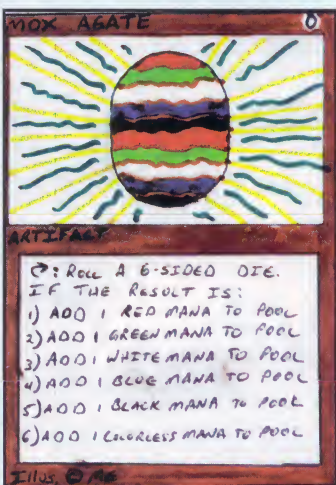 MOX AGATE 0
ARTIFACT
: ROLL A 6-SIDED DIE.
IF THE RESULT IS:
1) ADD 1 RED MANA TO POOL
2) ADD 1 GREEN MANA TO POOL
3) ADD 1 WHITE MANA TO POOL
4) ADD 1 BLUE MANA TO POOL
5) ADD 1 BLACK MANA TO POOL
6) ADD 1 COLORLESS MANA TO POOL
Illus. ©